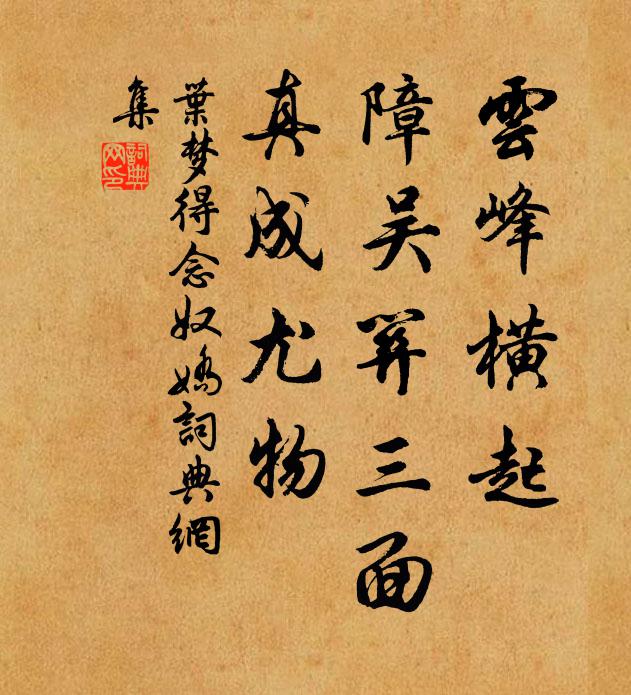 雲峰橫起
障吴關三面
真成尤物
葉梦得念奴嬌詞典網
集
詞典网印